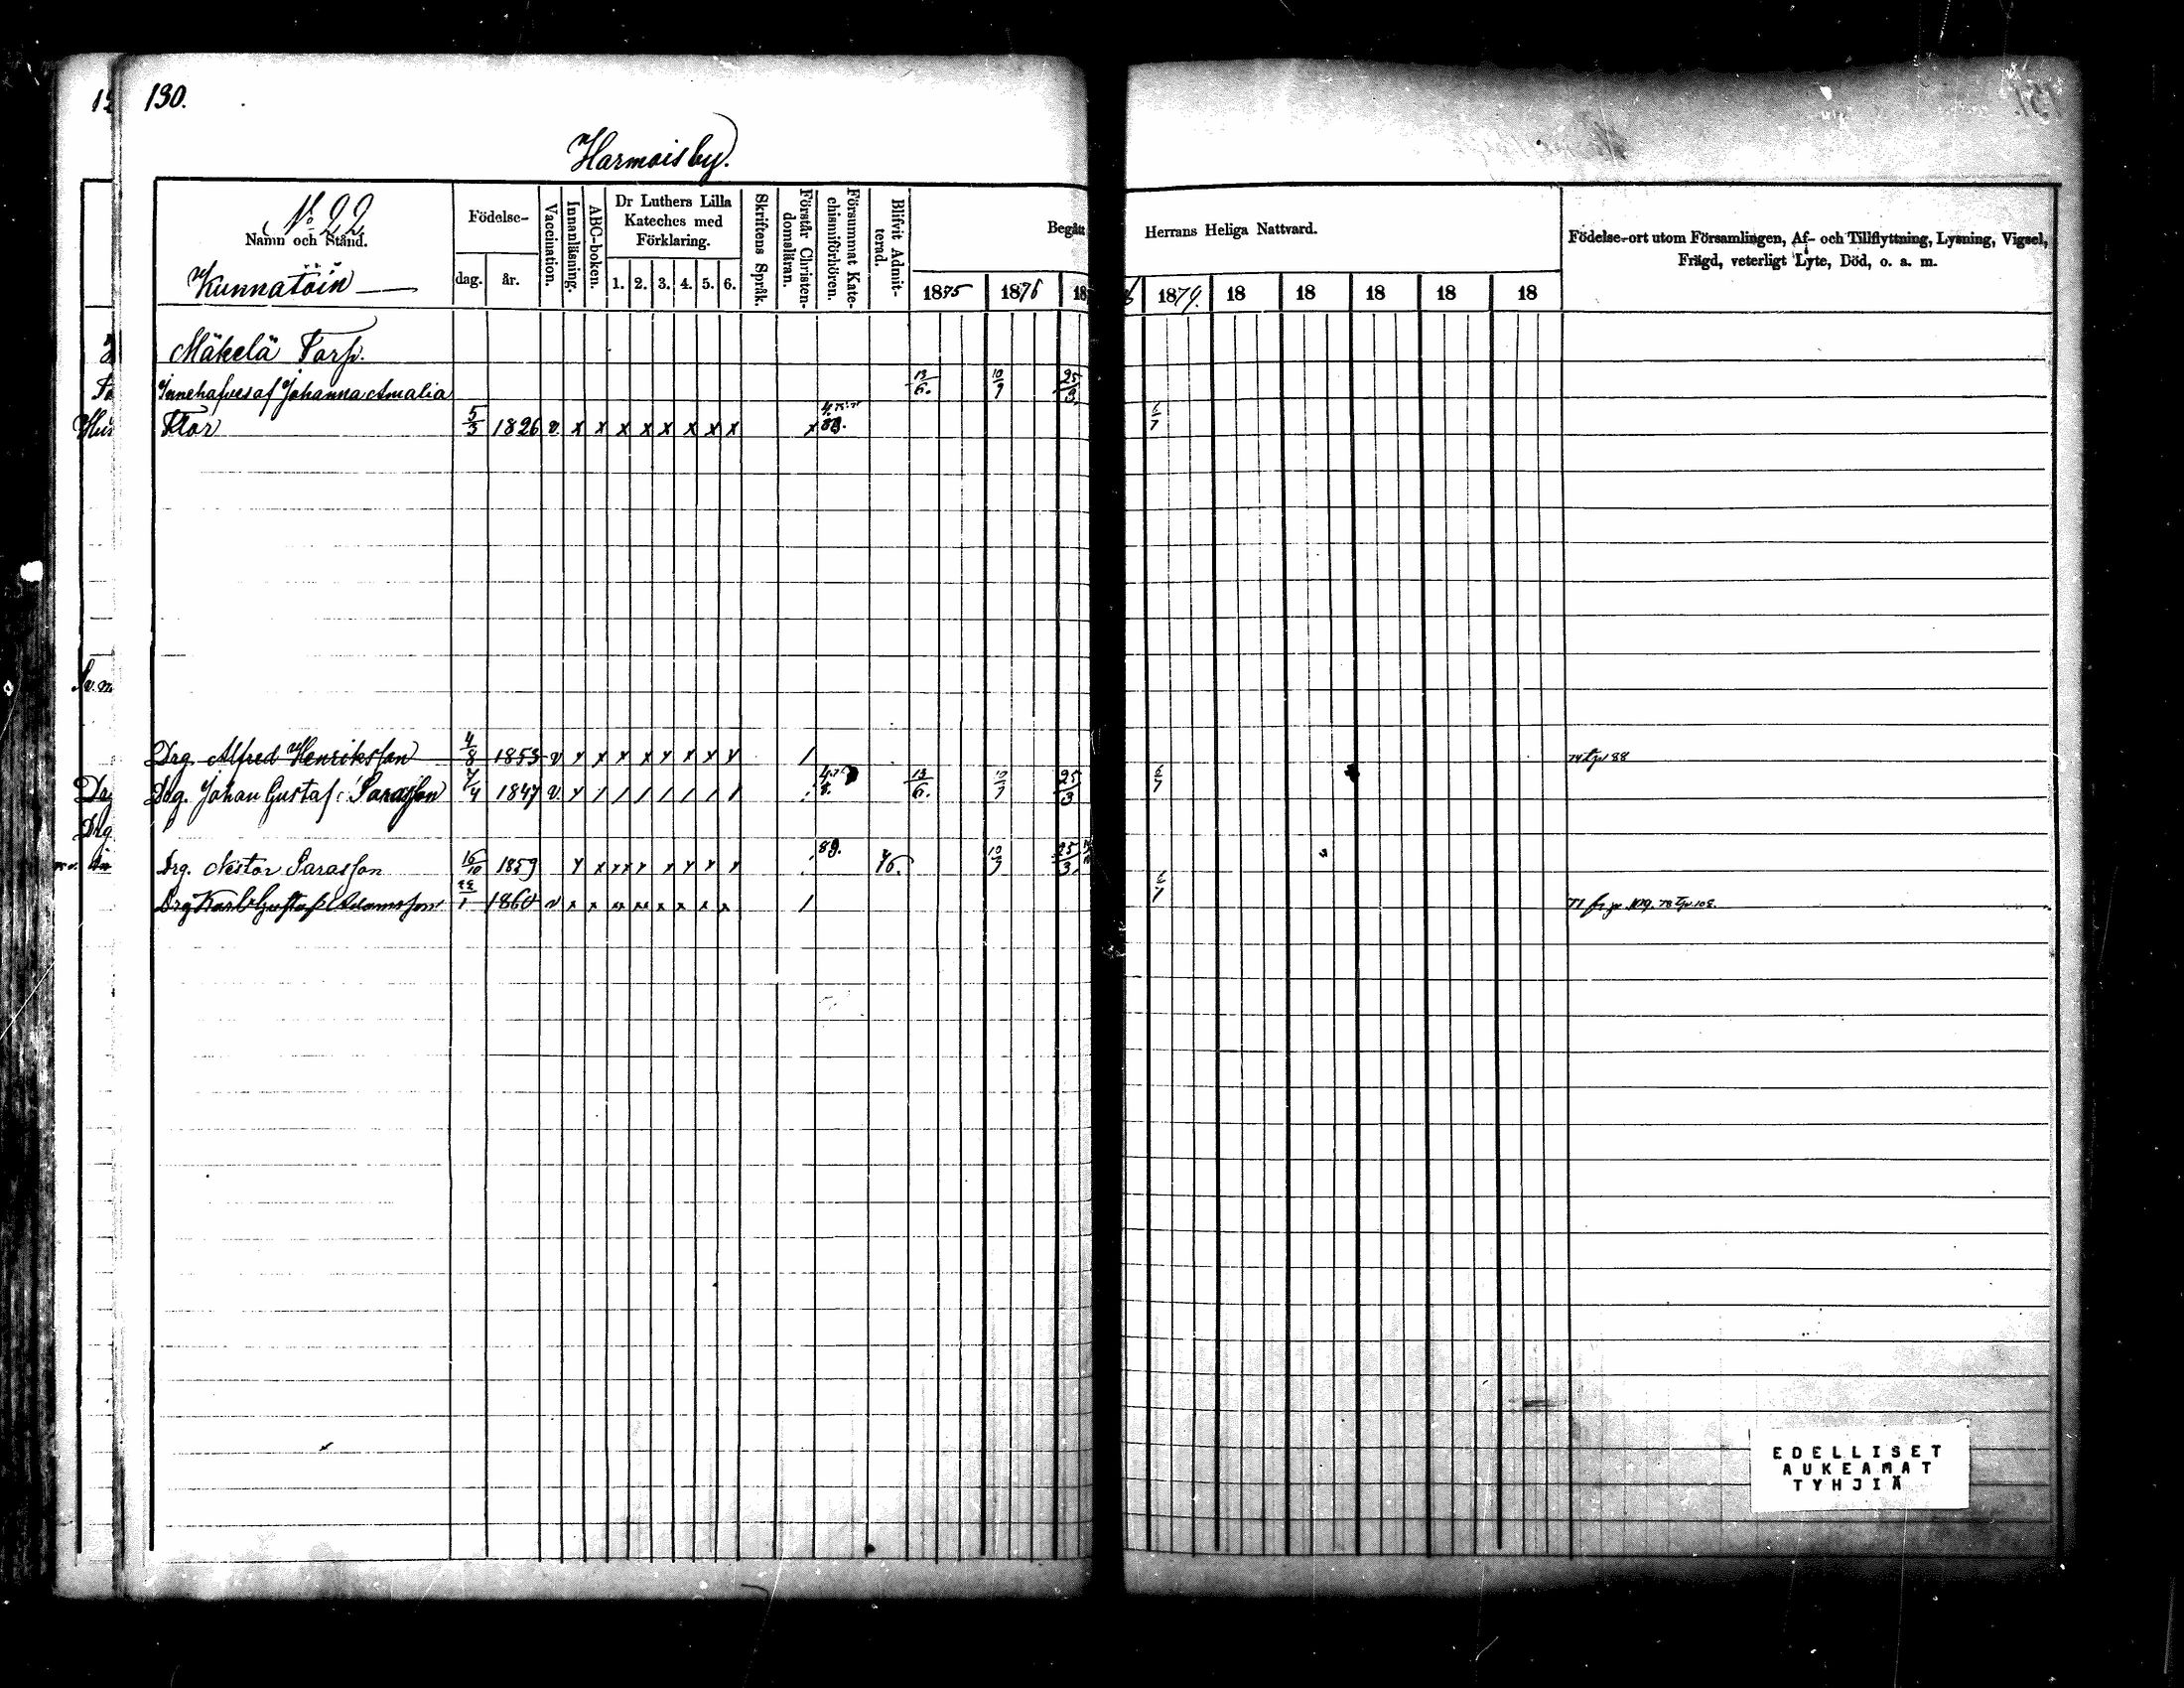 130.
Harmois by.
No 22
Namn och Stånd.
Kunnatöin
Födelse-
dag. år.
Vaccination.
Innanläsning.
ABC-boken.
Dr Luthers Lilla
Kateches med
Förklaring.
1. 2. 3. 4. 5. 6.
Skriftens Språk.
Förstår Christen-
domsläran.
Försummat Kate-
chismiförhören.
Blifvit Admit-
terad.
Begått
Herrans Heliga Nattvard.
1875 1876 18
1879. 18 18 18 18 18
Födelse-ort utom Församlingen, Af- och Tillflyttning, Lysning, Vigsel,
Frägd, veterligt Lyte, Död, o. a. m.
Mäkelä Torp.
Innehafves af Johanna Amalia 13/6. 10/9 25/3.
Flor 5/3 1826 v. x x x x x x x x x 6/7
Drg. Alfred Henriksson 4/8 1853 v x x x x x x x x / 74 tp 88
Drg. Johan Gustaf Sarasson 7/4 1847 v. x / / / / / / / 13/6. 10/9 25/3 6/7
Drg. Nestor Sarasson 16/10 1859 x x x x x x x x x 89. 76. 10/9 25/3. 6/7
Drg Karl Gustaf Adamsson 22/1 1860 v x x x x x x x x / 77 fr p. 109. 78 tp 108.
EDELLISET
AUKEAMAT
TYHJIÄ